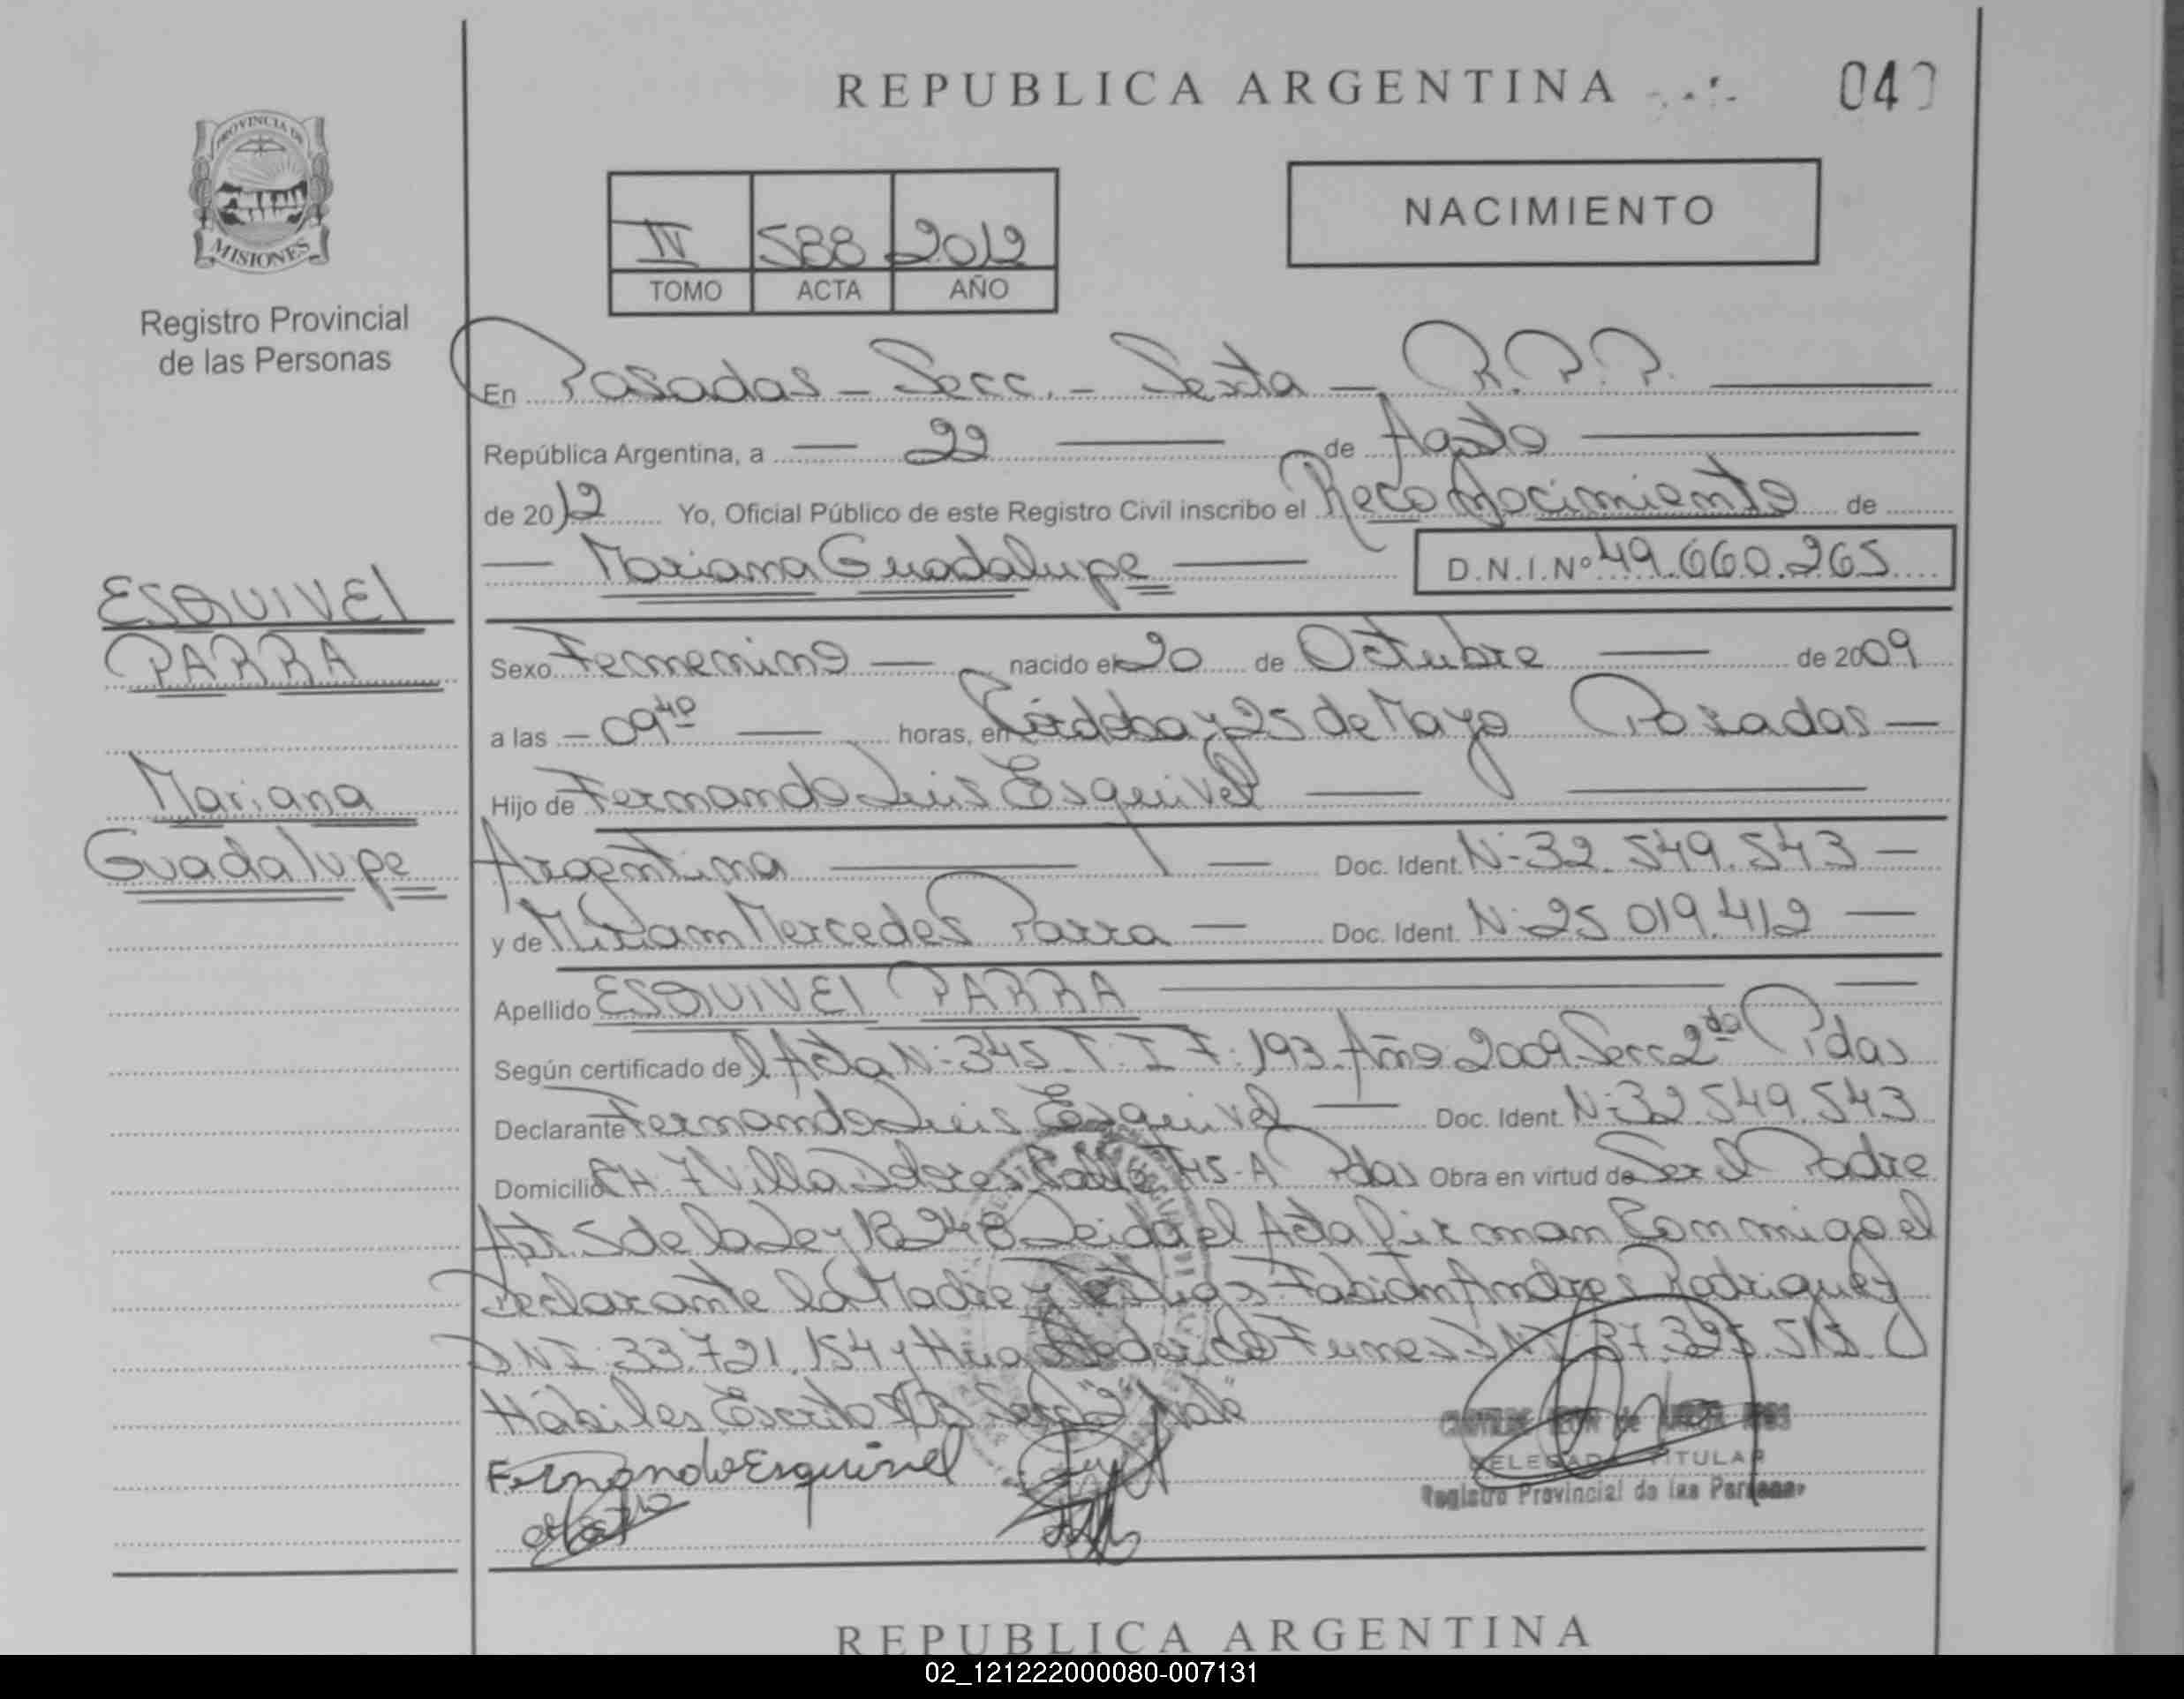 REPUBLICA ARGENTINA
04
PROVINCIA DE
MISIONES
Registro Provincial
de las Personas
IV 588 2012
TOMO ACTA AÑO
NACIMIENTO
En Posadas - Secc. - Sexta - R.P.P.
República Argentina, a 22 de Agosto
de 2012 Yo, Oficial Público de este Registro Civil inscribo el Reconocimiento de
Mariana Guadalupe D.N.I.Nº 49.660.265
ESQUIVEL
PARRA
Mariana
Guadalupe
Sexo Femenino nacido el 20 de Octubre de 2009
a las 09 40 horas, en Córdoba y 25 de Mayo Posadas
Hijo de Fernando Luis Esquivel
Argentina Doc. Ident. Nº 32.549.543
y de Miriam Mercedes Parra Doc. Ident. Nº 25.019.412
Apellido ESQUIVEL PARRA
Según certificado del Acta Nº 345 T: I F: 193 Año 2009 Secc 2da Pdas
Declarante Fernando Luis Esquivel Doc. Ident. Nº 32.549.543
Domicilio CH. 7 Villa Dolores 45-A Pdas Obra en virtud de Ser el Padre
Art 5 de la Ley 18248 Leida el Acta firman Conmigo el
Declarante la Madre y Testigos Fabián Andres Rodriguez
DNI: 33.721.154 y Hugo Funes DNI
Hábiles, Escrito
Fernando Esquivel
DELEGADA TITULAR
Registro Provincial de las Personas
REPUBLICA ARGENTINA
02_121222000080-007131